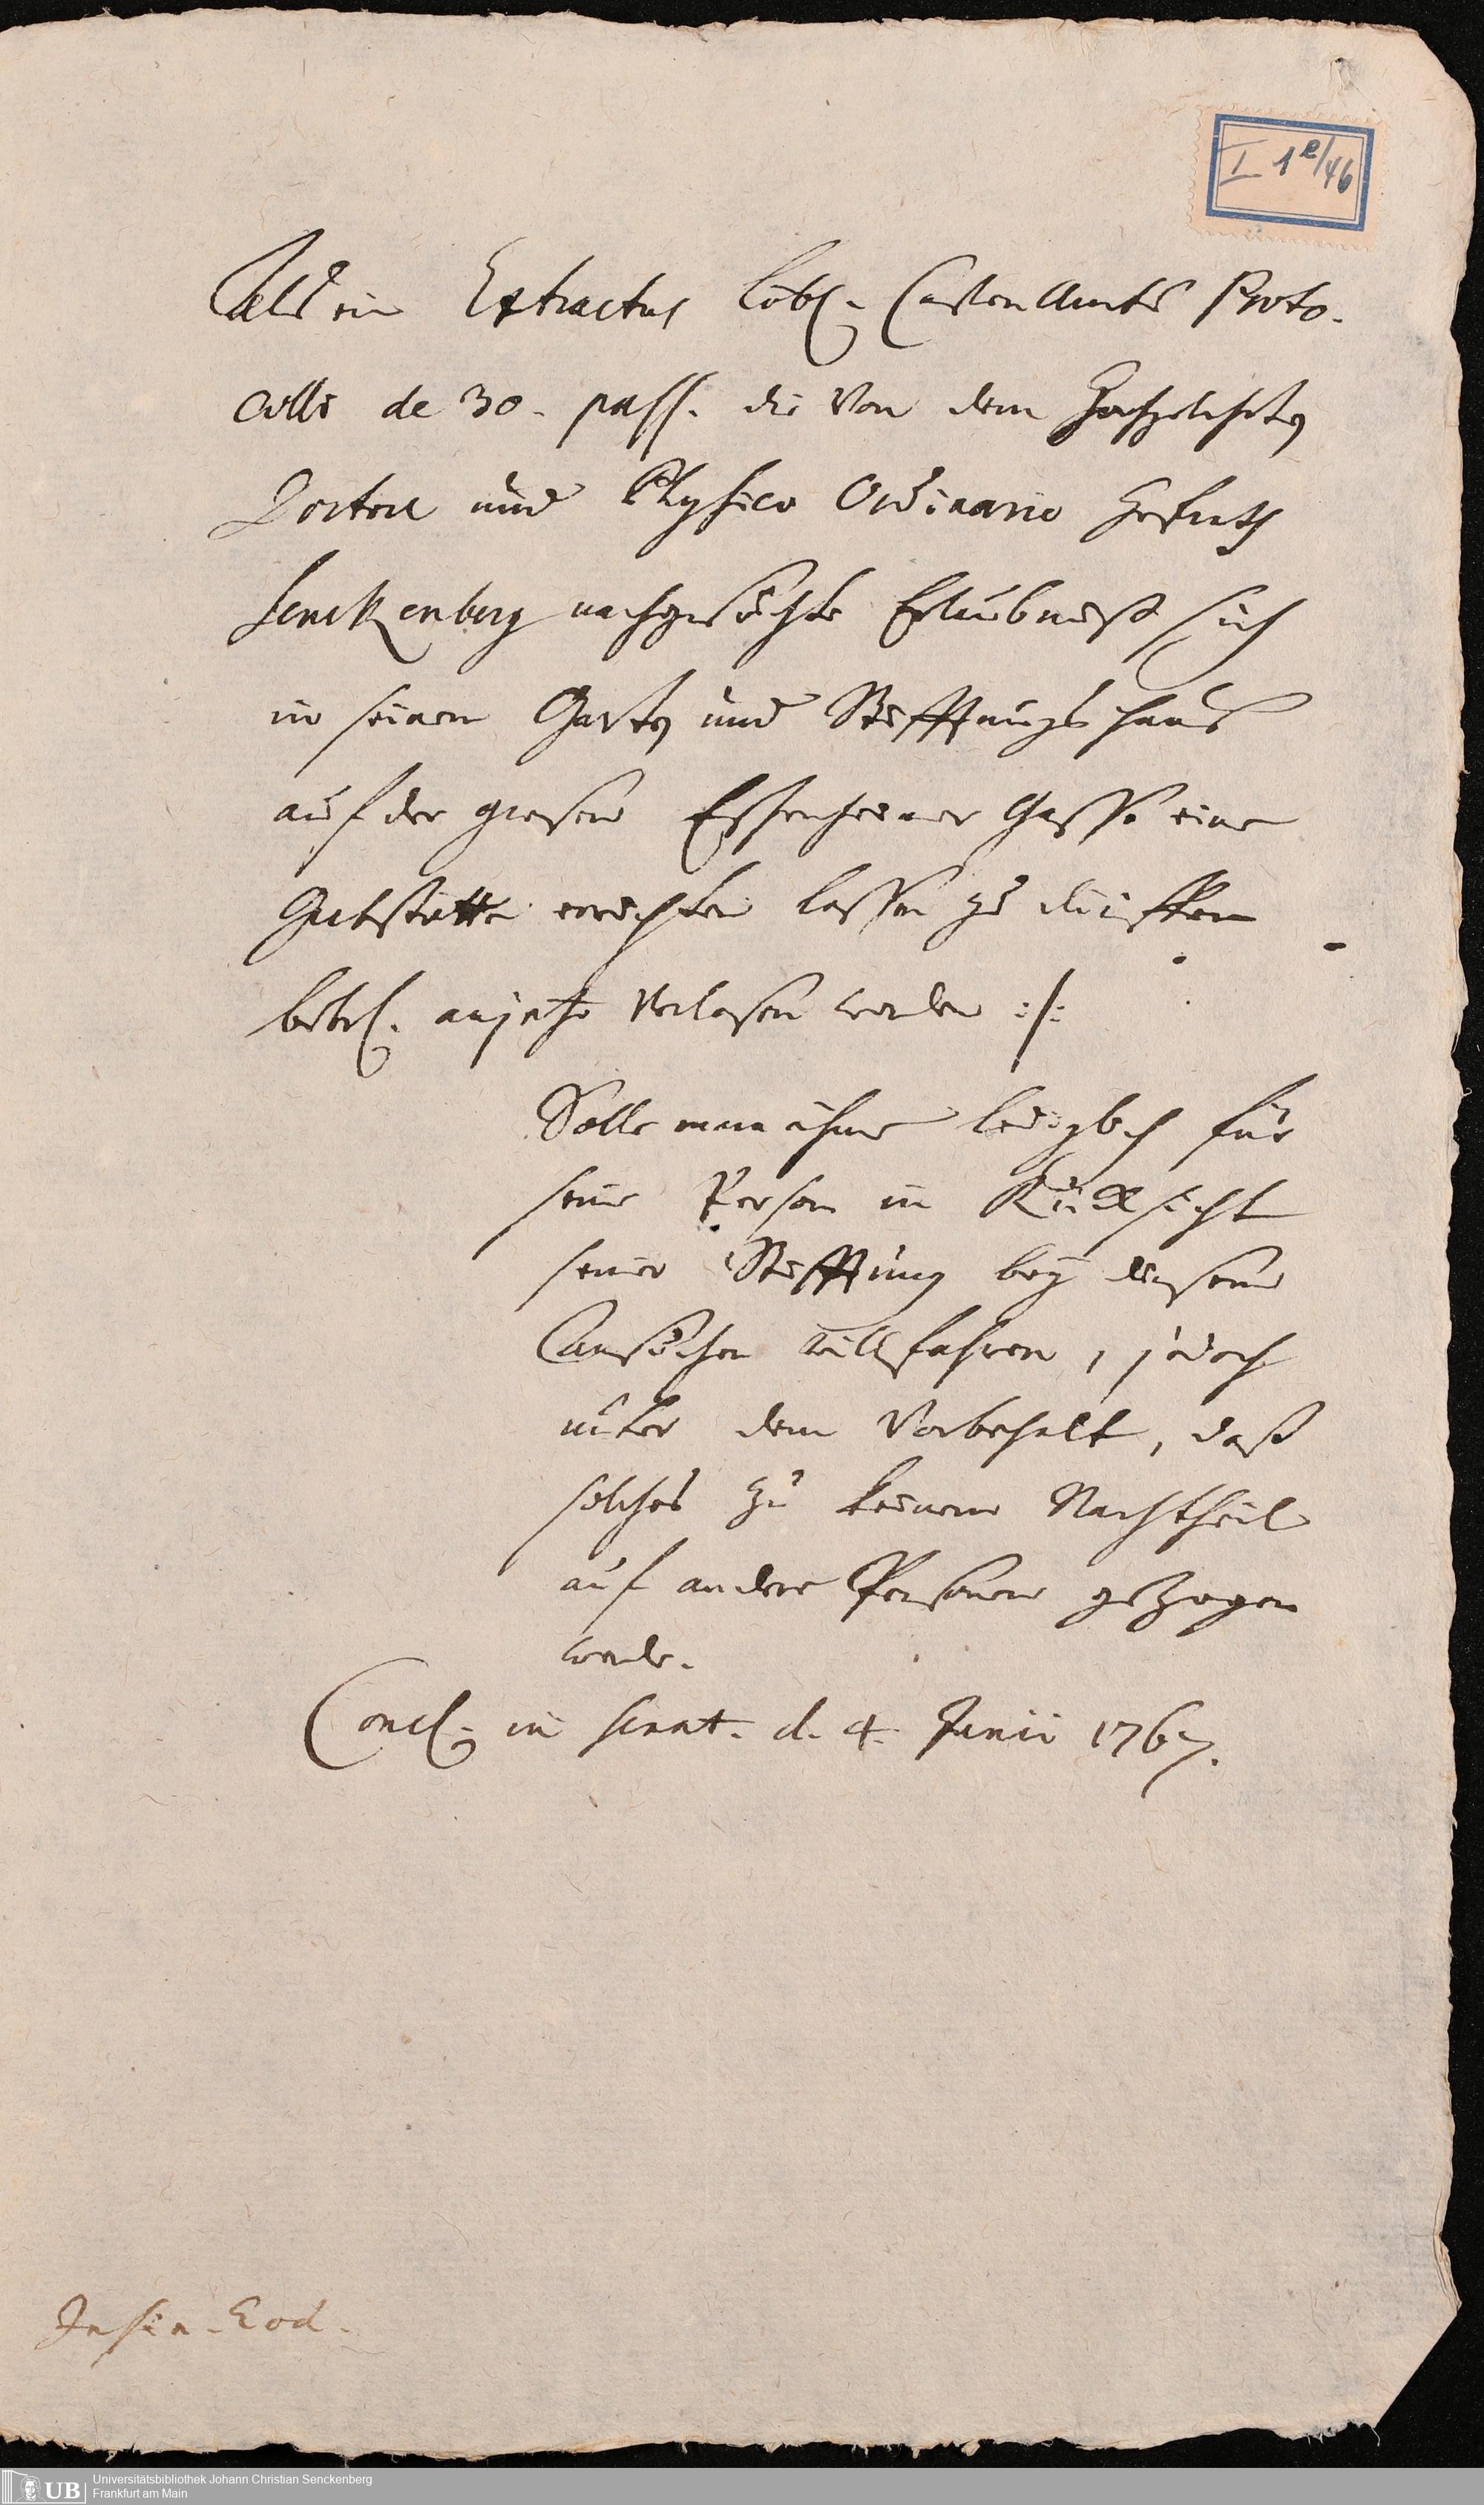 I 1e/46
Als ein Extractus löbl. CastenAmts Proto-
colli de 30. pass. die von dem Hochgelehrten
Doctore und Physico Ordinario Hofrath
Senckenberg nachgesuchte Erlaubnuß sich
in seinem Garten und Stifftungshaus
auf der grosen Eschenheimer Gasse eine
Grabstätte errichten lassen zu dürffen
betrl. anjetzo verlesen worden :/:
Solle man ihme lediglich für
seine Person in Rücksicht
seiner Stifftung bey diesem
Ansuchen willfahren, jedoch
unter dem Vorbehalt, daß
solches zu keinem Nachtheil
auf andere Personen gezogen
werde.
Concl. in Senat. d. 4. Junii 1767.
Insin. Eod.
UB
Universitätsbibliothek Johann Christian Senckenberg
Frankfurt am Main